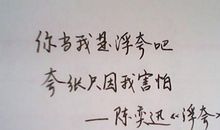 你当我是浮夸吧
夸张只因我害怕
——陈奕迅《浮夸》